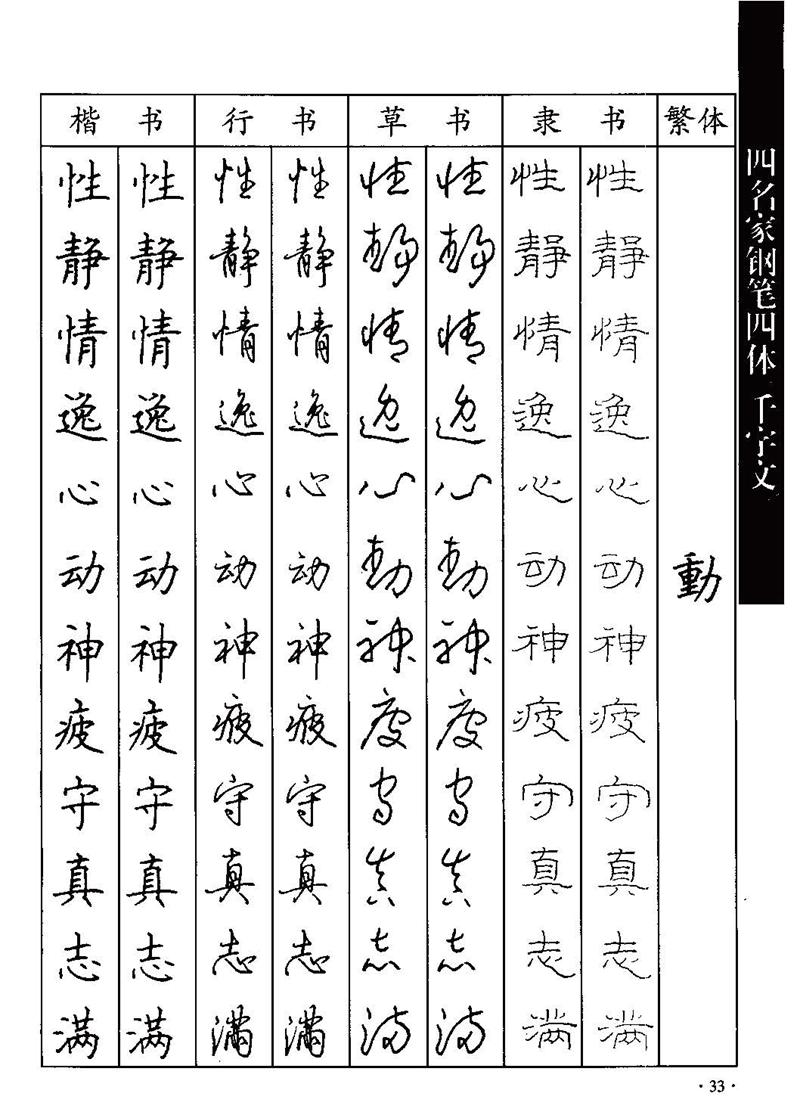 楷 书 行 书 草 书 隶 书 繁体
性 性 性 性 性 性 性 性
静 静 静 静 静 静 静 静
情 情 情 情 情 情 情 情
逸 逸 逸 逸 逸 逸 逸 逸
心 心 心 心 心 心 心 心
动 动 动 动 動 動 动 动 動
神 神 神 神 神 神 神 神
疲 疲 疲 疲 疲 疲 疲 疲
守 守 守 守 守 守 守 守
真 真 真 真 真 真 真 真
志 志 志 志 志 志 志 志
满 满 满 满 满 满 满 满
四名家钢笔四体 千字文
·33·